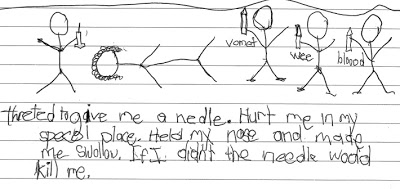 vomet
wee
bloood
threted to give me a nedle. Hurt me in my
special place. Held my nose and made
me swollow. If I didn't the needle woold
kill me.